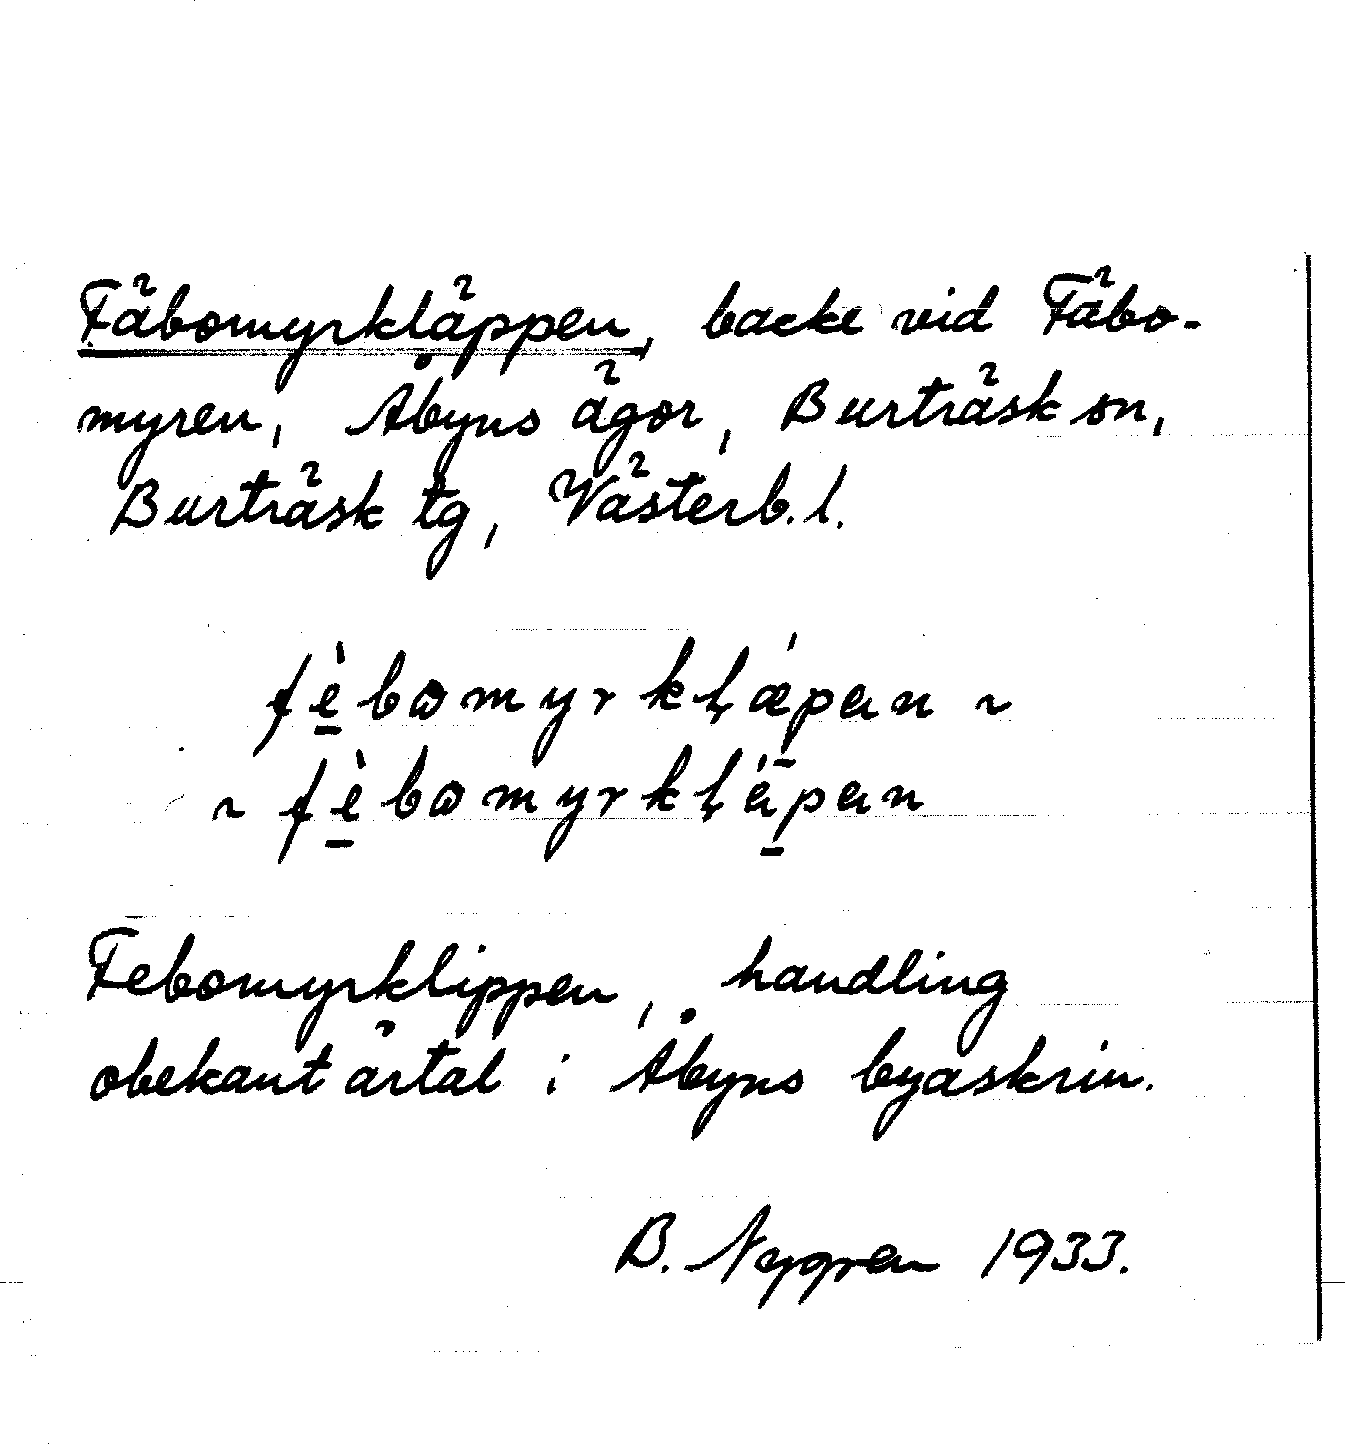 Fäbomyrkläppen, backe vid Fäbo-
myren, Åbyns ägor, Burträsk sn,
Burträsk tg, Västerb. l.
fe̠̍bωmyrkḷæ̍p̠ən ~
~ fe̠̍bωmyrkḷa̍p̠ən
Febomyrklippen, handling
obekant årtal i Åbyns byaskrin.
B. Nygren 1933.